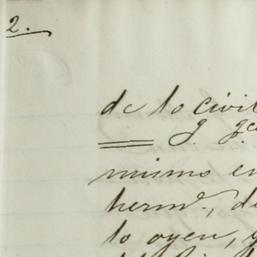 2.
de lo civil
g. ge
mismo en
hermo, de
lo oyen, y